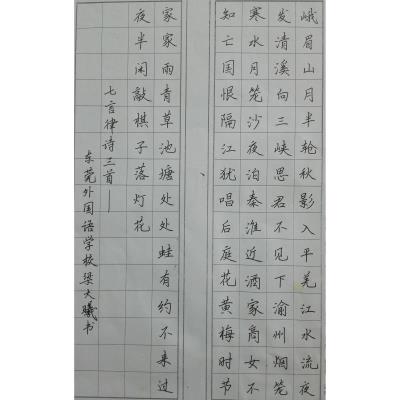 峨眉山月半轮秋影入平羌江水流夜
发清溪向三峡思君不见下渝州烟笼
寒水月笼沙夜泊秦淮近酒家商女不
知亡国恨隔江犹唱后庭花黄梅时节
家家雨青草池塘处处蛙有约不来过
夜半闲敲棋子落灯花
七言律诗三首——
东莞外国语学校梁大曦书